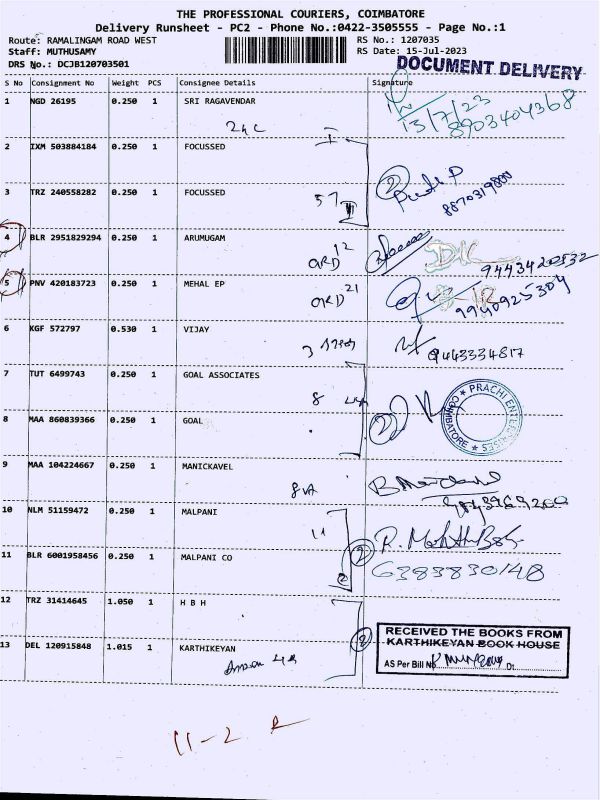 THE PROFESSIONAL COURIERS, COIMBATORE
Delivery Runsheet - PC2 - Phone No.:0422-3505555 - Page No.:1
Route: RAMALINGAM ROAD WEST RS No.: 1207035
Staff: MUTHUSAMY RS Date: 15-Jul-2023
DRS No.: DCJB120703501
DOCUMENT DELIVERY
S No Consignment No Weight PCS Consignee Details Signature
1 NGD 26195 0.250 1 SRI RAGAVENDAR
13/7/23
8903404368
2 IXM 503884184 0.250 1 FOCUSSED
3 TRZ 240558282 0.250 1 FOCUSSED
57
8870319800
4 BLR 2951829294 0.250 1 ARUMUGAM
ORD 12
9443420532
5 PNV 420183723 0.250 1 MEHAL EP
ORD 21
9940925304
6 KGF 572797 0.530 1 VIJAY
9443334817
7 TUT 6499743 0.250 1 GOAL ASSOCIATES
8
8 MAA 860839366 0.250 1 GOAL
2
PRACHI ENTERPRISES
COIMBATORE
9 MAA 104224667 0.250 1 MANICKAVEL
10 NLM 51159472 0.250 1 MALPANI
11
2
11 BLR 6001958456 0.250 1 MALPANI CO
6383830148
12 TRZ 31414645 1.050 1 H B H
2
13 DEL 120915848 1.015 1 KARTHIKEYAN
RECEIVED THE BOOKS FROM
KARTHIKEYAN BOOK HOUSE
AS Per Bill No Dt
11-2